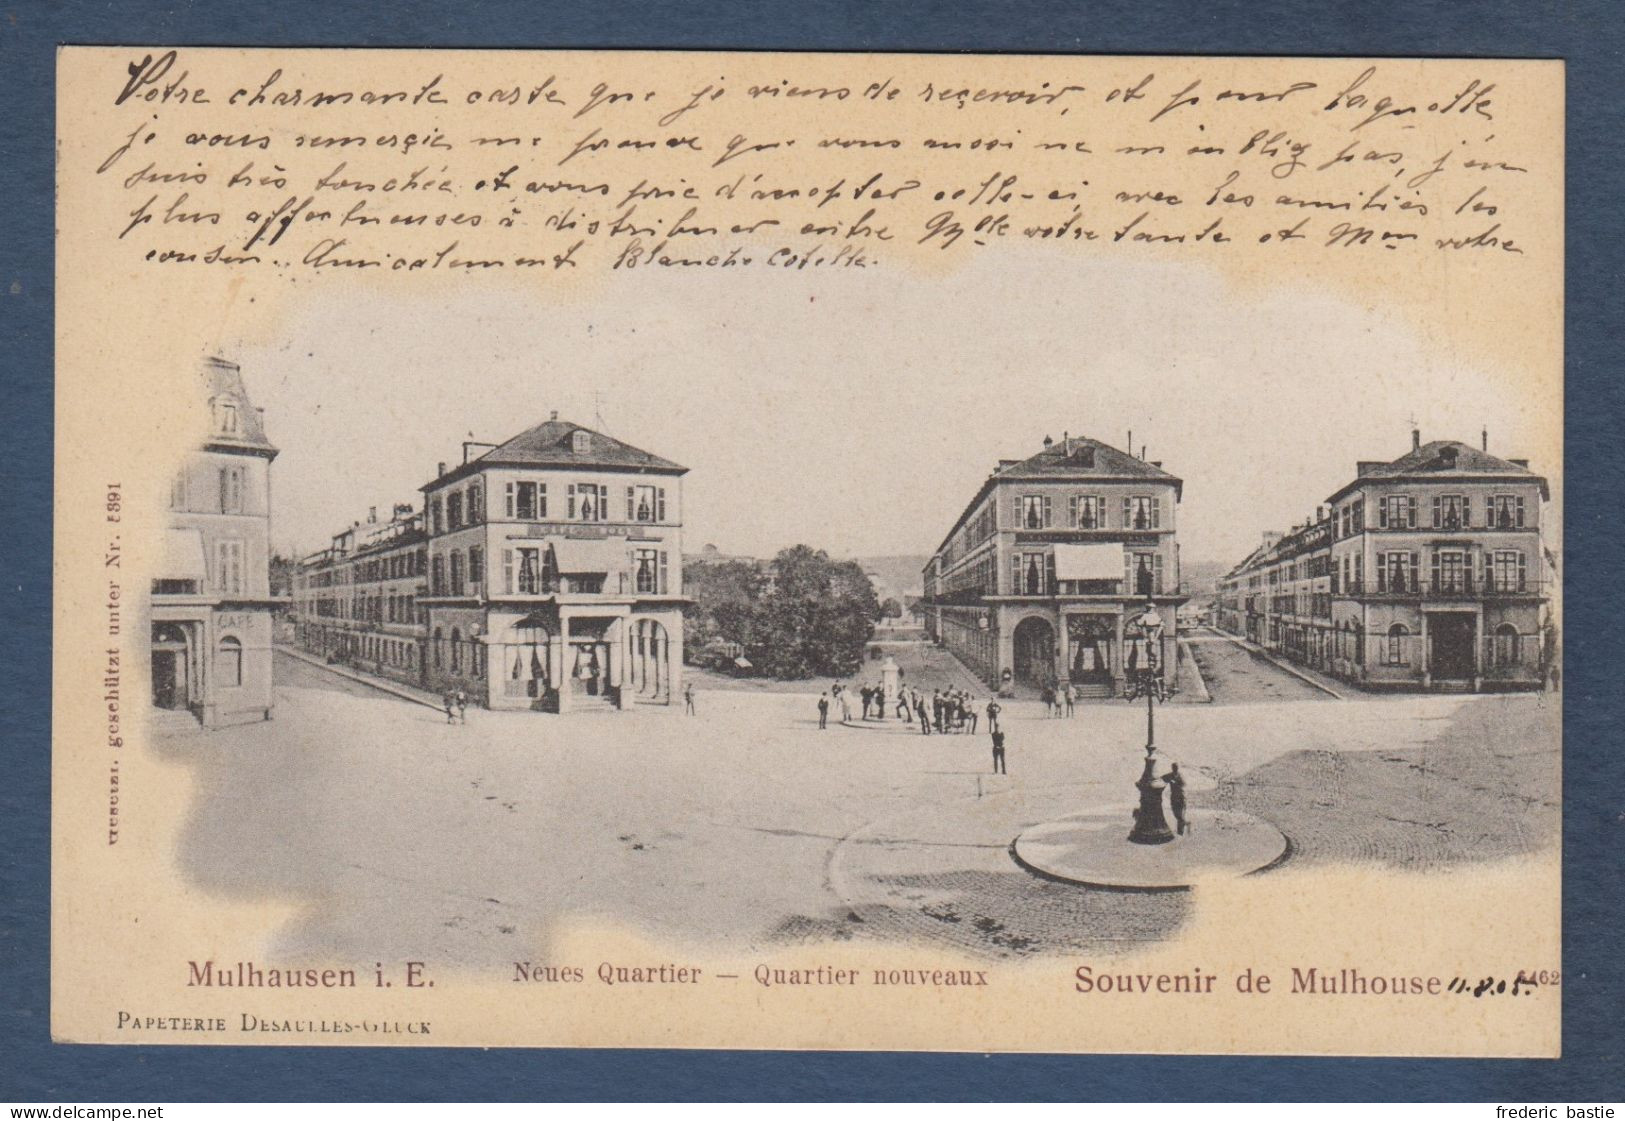 Votre charmante carte que je viens de reçevoir, et pour laquelle
je vous remerçie me prouve que vous aussi ne m'oubliez pas, j'en
suis très touchée et vous prie d'accepter celle-ci, avec les amitiés les
plus affectueuses à distribuer entre Mlle votre tante et Mon votre
cousin.. Amicalement Blanche Cotelle.
CAFÉ
geschützt unter Nr. 5391
Mulhausen i. E.
Neues Quartier — Quartier nouveaux
Souvenir de Mulhouse
11.8.05.
6462
PAPETERIE DESAULLES-GLUCK
delcampe.net
frederic bastie